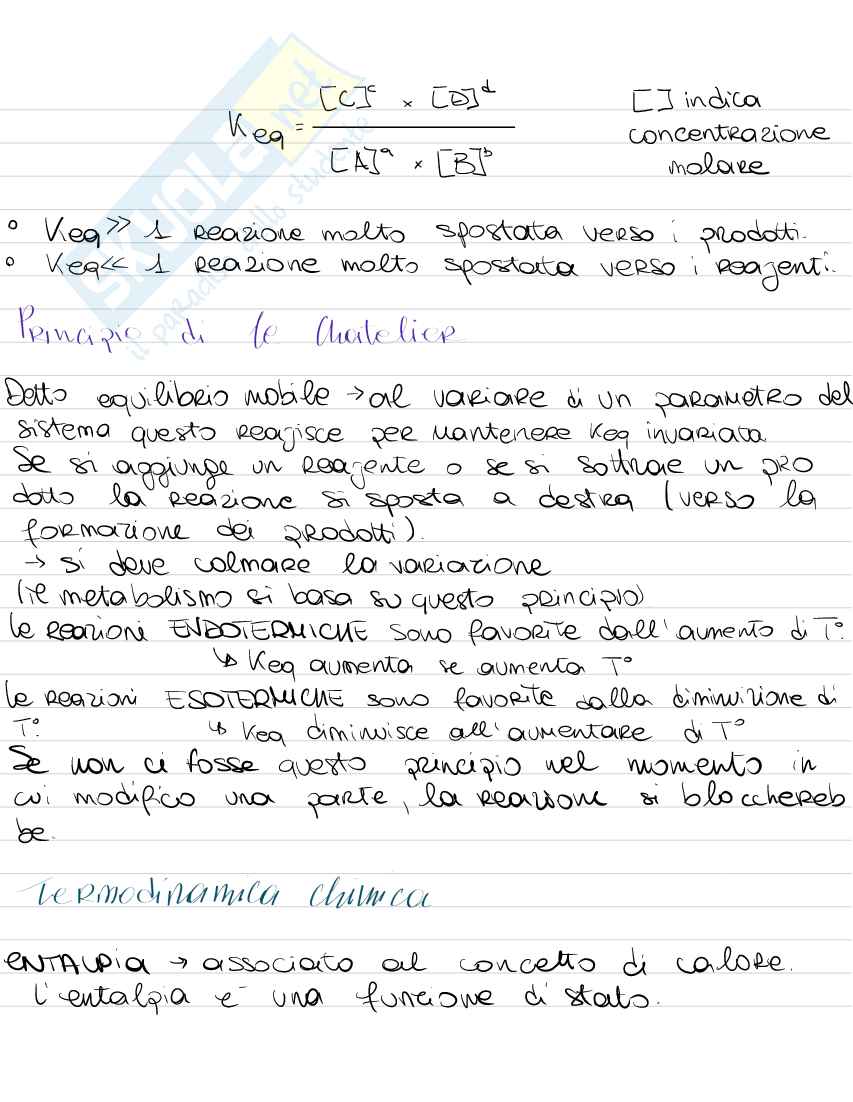 Keq = [C]ᶜ × [D]ᵈ / [A]ᵃ × [B]ᵇ
[ ] indica
concentrazione
molare
SKUOLA.net
il paradiso dello studente
° Keq >> 1 reazione molto spostata verso i prodotti.
° Keq << 1 reazione molto spostata verso i reagenti.
Principio di le Chatelier
Detto equilibrio mobile → al variare di un parametro del
sistema questo reagisce per mantenere Keq invariata
Se si aggiunge un reagente o se si sottrae un pro
dotto la reazione si sposta a destra (verso la
formazione dei prodotti).
→ si deve colmare la variazione
(il metabolismo si basa su questo principio)
le reazioni ENDOTERMICHE sono favorite dall'aumento di T°.
↳ Keq aumenta se aumenta T°
le reazioni ESOTERMICHE sono favorite dalla diminuizione di
T°. ↳ Keq diminuisce all'aumentare di T°
Se non ci fosse questo principio nel momento in
cui modifico una parte, la reazione si blocchereb
be.
Termodinamica chimica
ENTALPIA → associato al concetto di calore.
L'entalpia è una funzione di stato.